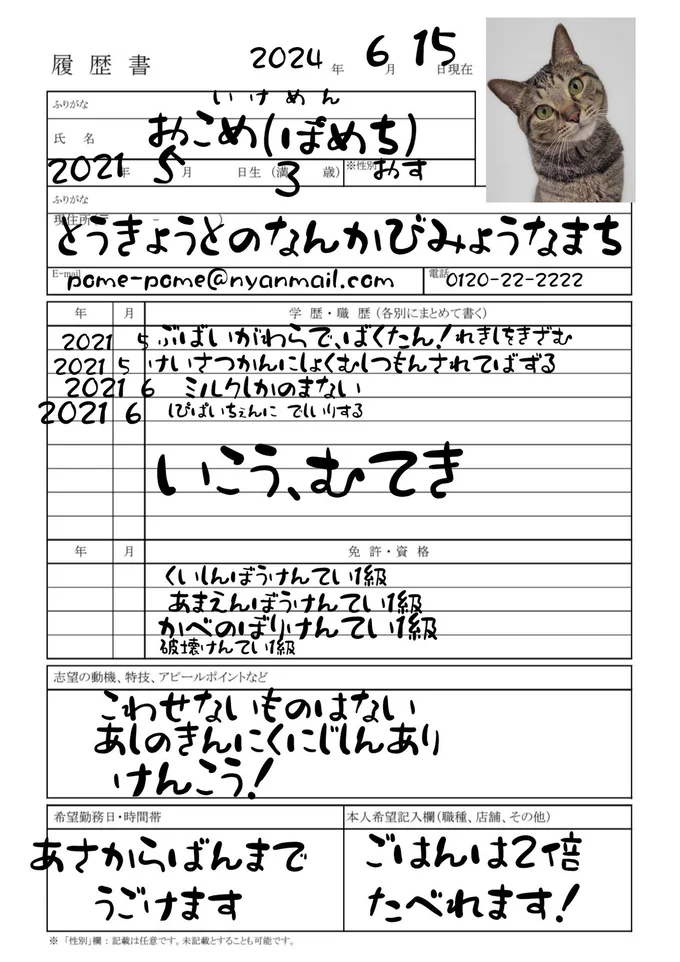 履歴書 2024年 6月 15日現在
ふりがな いけめん
氏名 おこめ(ぽめち)
2021年 5月 日生 (満 3 歳) ※性別 おす
ふりがな
現住所 〒 - )
とうきょうとのなんかびみょうなまち
E-mail pome-pome@nyanmail.com 電話 0120-22-2222
年 月 学歴・職歴 (各別にまとめて書く)
2021 5 ぶばいがわらで、ばくたん!れきしをきざむ
2021 5 けいさつかんにしょくむしつもんされてばずる
2021 6 ミルクしかのまない
2021 6 しぴばいちぇんに でしいりする
いこう、むてき
年 月 免許・資格
くいしんぼうけんてい1級
あまえんぼうけんてい1級
かべのぼりけんてい1級
破壊けんてい1級
志望の動機、特技、アピールポイントなど
こわせないものはない
あしのきんにくにじしんあり
けんこう!
希望勤務日・時間帯
あさからばんまで
うごけます
本人希望記入欄(職種、店舗、その他)
ごはんは2倍
たべれます!
※「性別」欄:記載は任意です。未記載とすることも可能です。